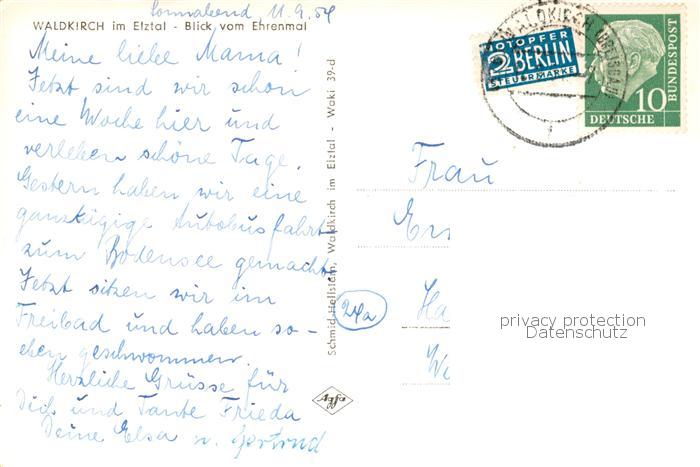 Sonnabend 11.9.54
WALDKIRCH im Elztal - Blick vom Ehrenmal
Meine liebe Mama!
Jetzt sind wir schon
eine Woche hier und
verleben schöne Tage.
Gestern haben wir eine
ganztägige Autobusfahrt
zum Bodensee gemacht.
Jetzt sitzen wir im
Freibad und haben so-
eben geschwommen.
Herzliche Grüsse für
Dich und Tante Frieda
Deine Elsa u. Gertrud
Schmid-Hellstern, Waldkirch im Elztal - Waki 39-d
24a
Agfa
NOTOPFER
2 BERLIN
STEUERMARKE
WALDKIRCH (BREISGAU)
10
DEUTSCHE
BUNDESPOST
Frau
privacy protection
Datenschutz